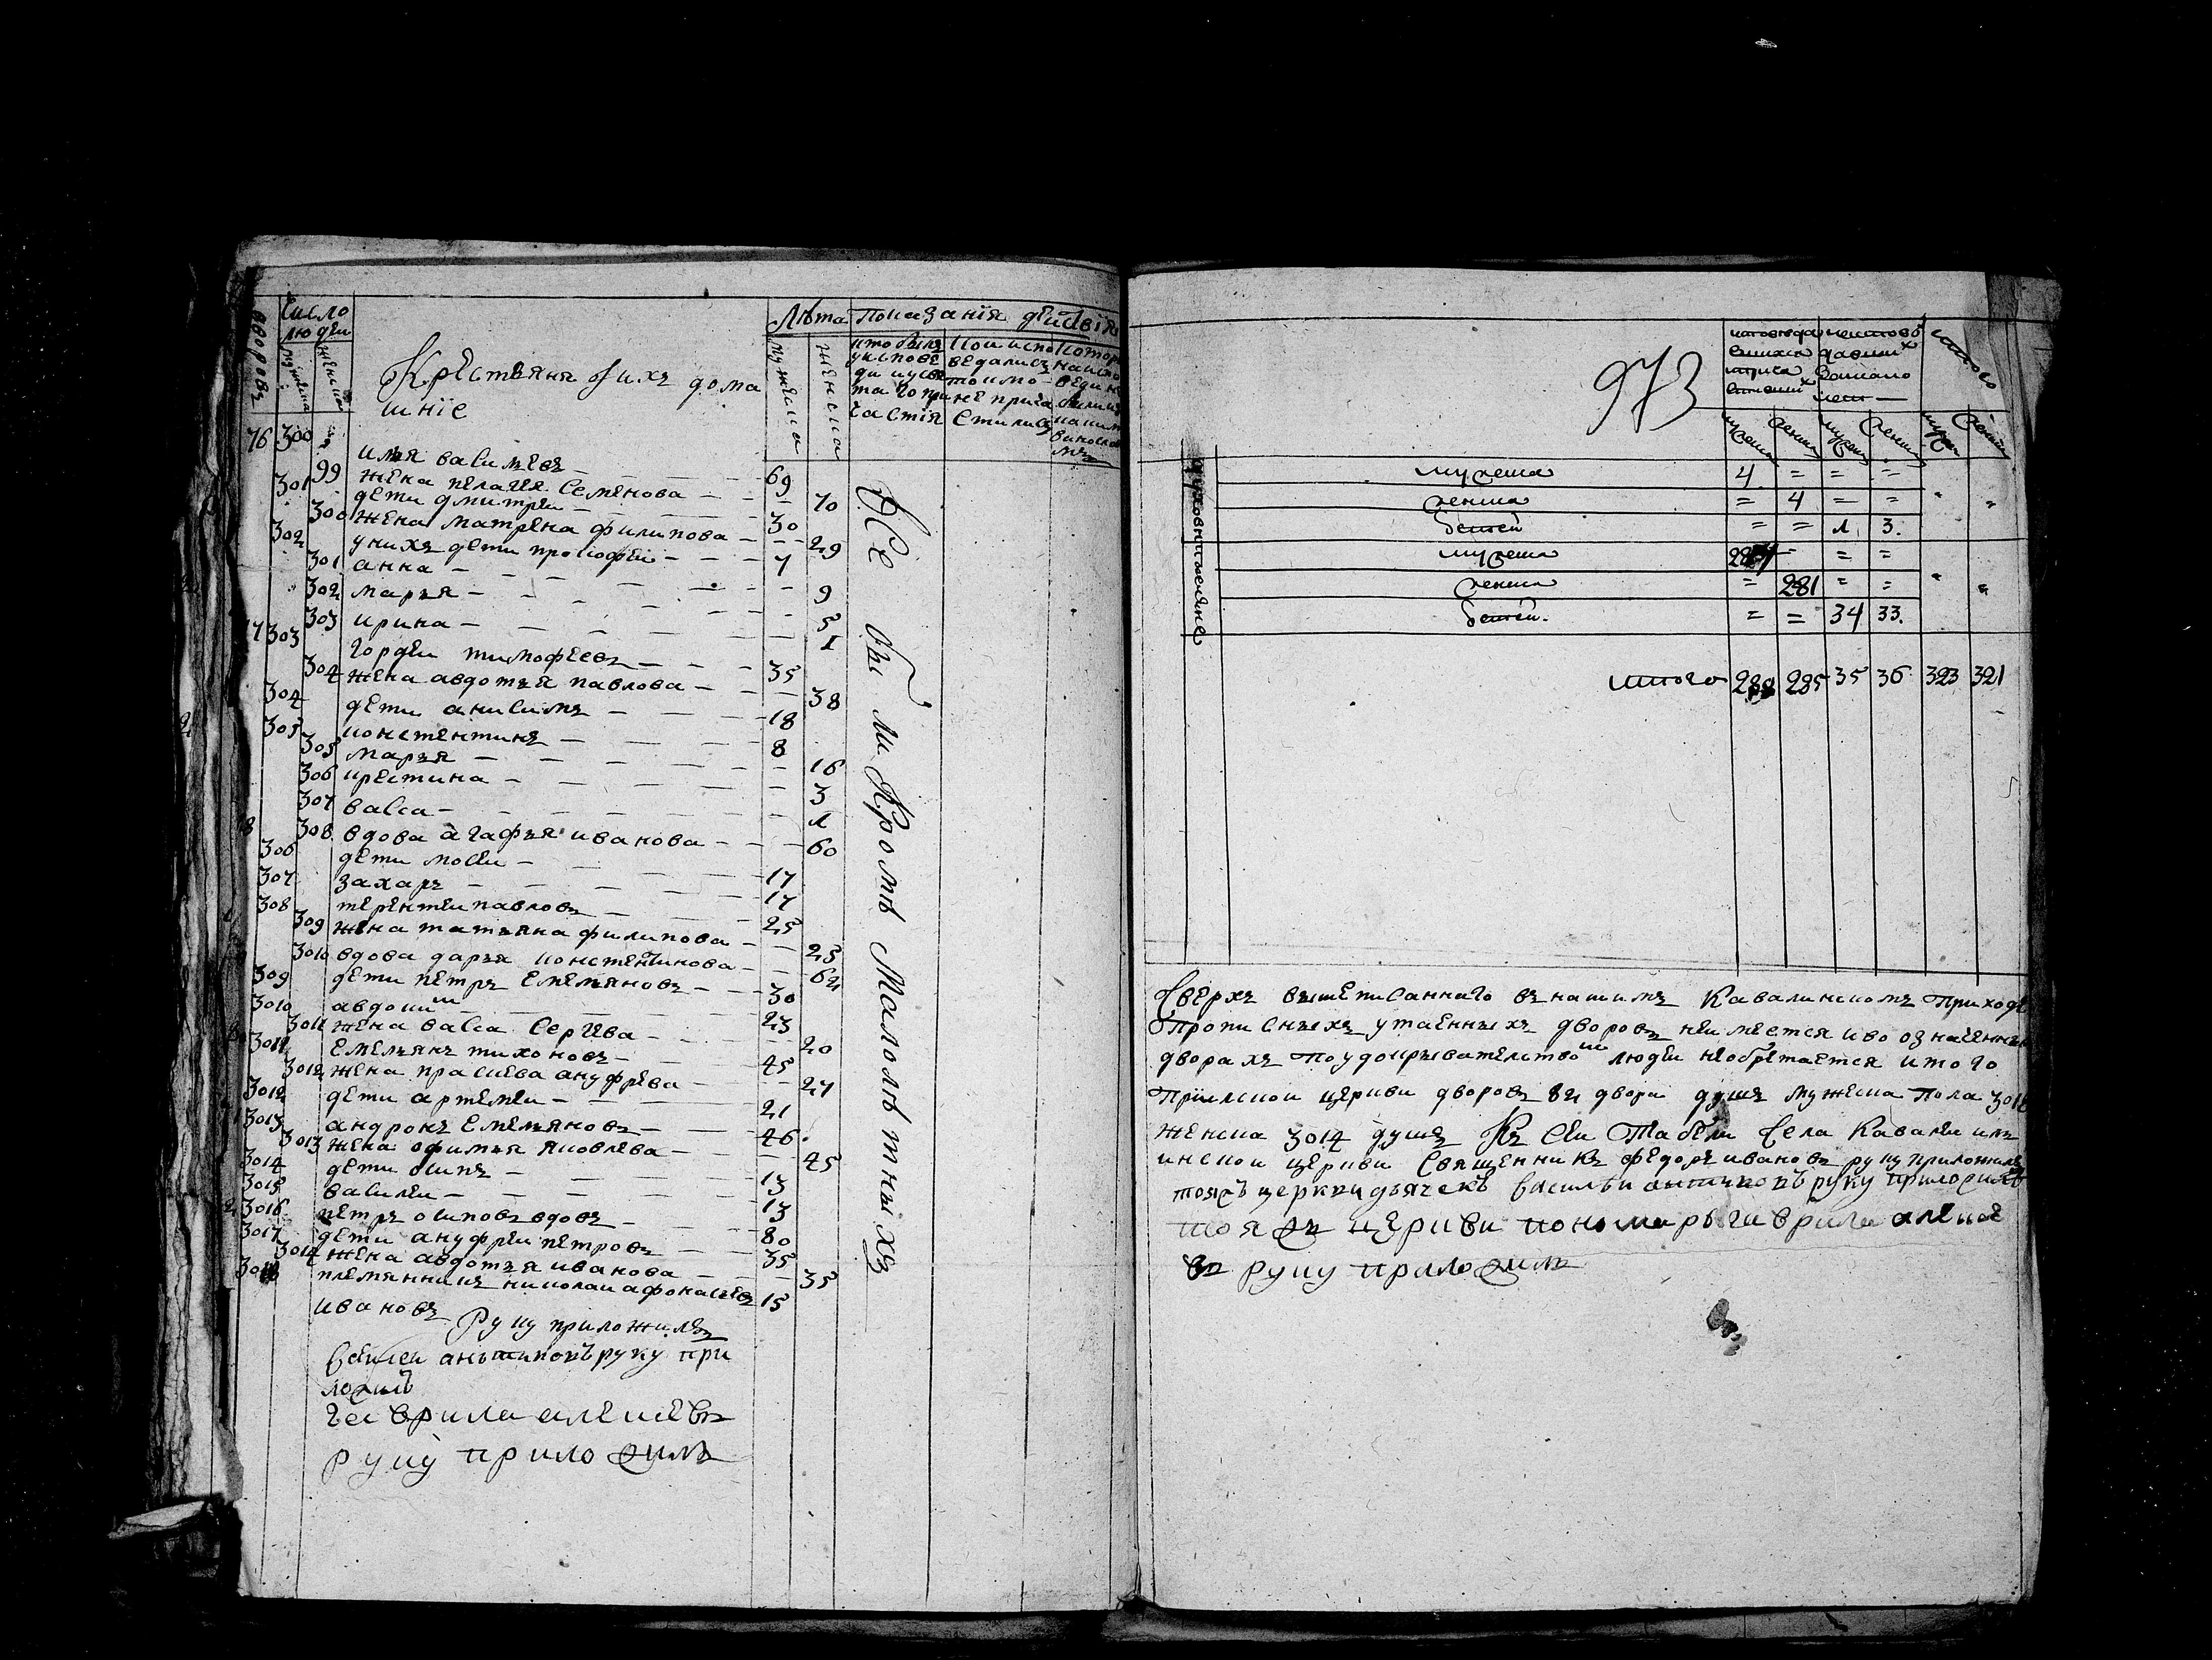 дворовъ
Число людеи
мужеска
женска
Крестьяня и ихъ дома
шнїе
Лѣта
мужеска
женска
Показанїя дѣиствїя
кто былъ
у исповѣ
ди и у свѣ
таго при
частїя
кои испо
ведались
токмо
не прича
стились
76 300 имя василевъ — 69
99 жена пелагея семенова — 70
301 дети дмитреи — 30
300 жена матрена филипова — 29
302 у нихъ дети прокофеи — 7
301 анна — 9
302 маръя — 5
303 ирина — 1
77 303 гордеи тимофеевъ — 35
304 жена авдотъя павлова — 38
304 дети анисимъ — 18
305 констентинъ — 8
305 маръя — 16
306 крестина — 3
307 васса — 1
78 308 вдова агафъя иванова — 60
306 дети мосеи — 17
307 захаръ — 17
308 терентеи павловъ — 25
309 жена татъяна филипова — 25
3010 вдова даръя констентинова — 62
309 дети петръ емелъяновъ — 30
3010 авдоким — 23
3011 жена васса сергѣева — 20
3011 емелъянъ тихоновъ — 45
3012 жена прасковѣа ануфрева — 27
3012 дети артемеи — 21
3013 андронъ емелъяновъ — 46
3013 жена офимъя яковлева — 45
3014 дети осипъ — 13
3015 василеи — 13
3016 петръ осиповъ вдовъ — 80
3017 дети ануфреи петровъ — 35
3014 жена авдотъя иванова — 35
3018 племянникъ николаи афонасевъ 15
Все бы ли Кромѣ Малолѣтныхъ
ивановъ руку приложилъ
василеи антиповъ руку при
ложилъ
гаврила алексѣевъ
руку приложилъ
973
исповѣда
вшихся
неисповѣ
давших
итого
мужеска женска мужеска женска мужеска женска
духовни
мужеска 4 = = =
женска = 4 = =
детеи = = 1 3.
мужеска 284 = = =
женска = 281 = =
детеи. = = 34 33.
итого 288 285 35 36 323 321
Сверхъ вышеписаннаго въ нашимъ Кавалинскомъ приходе
прописныхъ утаенныхъ дворовъ не имѣется и во означенныхъ
дворахъ по удокрывателство людеи необретается итого
при еи церкви дворовъ 82 двора душъ мужеска пола 3018
женска 3014 душъ Къ сеи табели села Кавалеи
инскои церкви священникъ федоръ ивановъ руку приложилъ
тояжъ церкви дъячекъ василеи антиповъ руку приложилъ
тояжъ церкви пономарь гаврила алексѣе
въ руку приложилъ